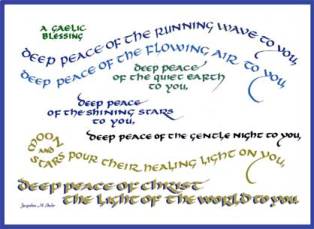 A GAELIC
BLESSING
DEEP PEACE OF THE RUNNING WAVE TO YOU,
DEEP PEACE OF THE FLOWING AIR TO YOU,
DEEP PEACE
OF THE QUIET EARTH
TO YOU,
DEEP PEACE
OF THE SHINING STARS
TO YOU,
DEEP PEACE OF THE GENTLE NIGHT TO YOU,
MOON AND
STARS POUR THEIR HEALING LIGHT ON YOU,
DEEP PEACE OF CHRIST
THE LIGHT OF THE WORLD TO YOU